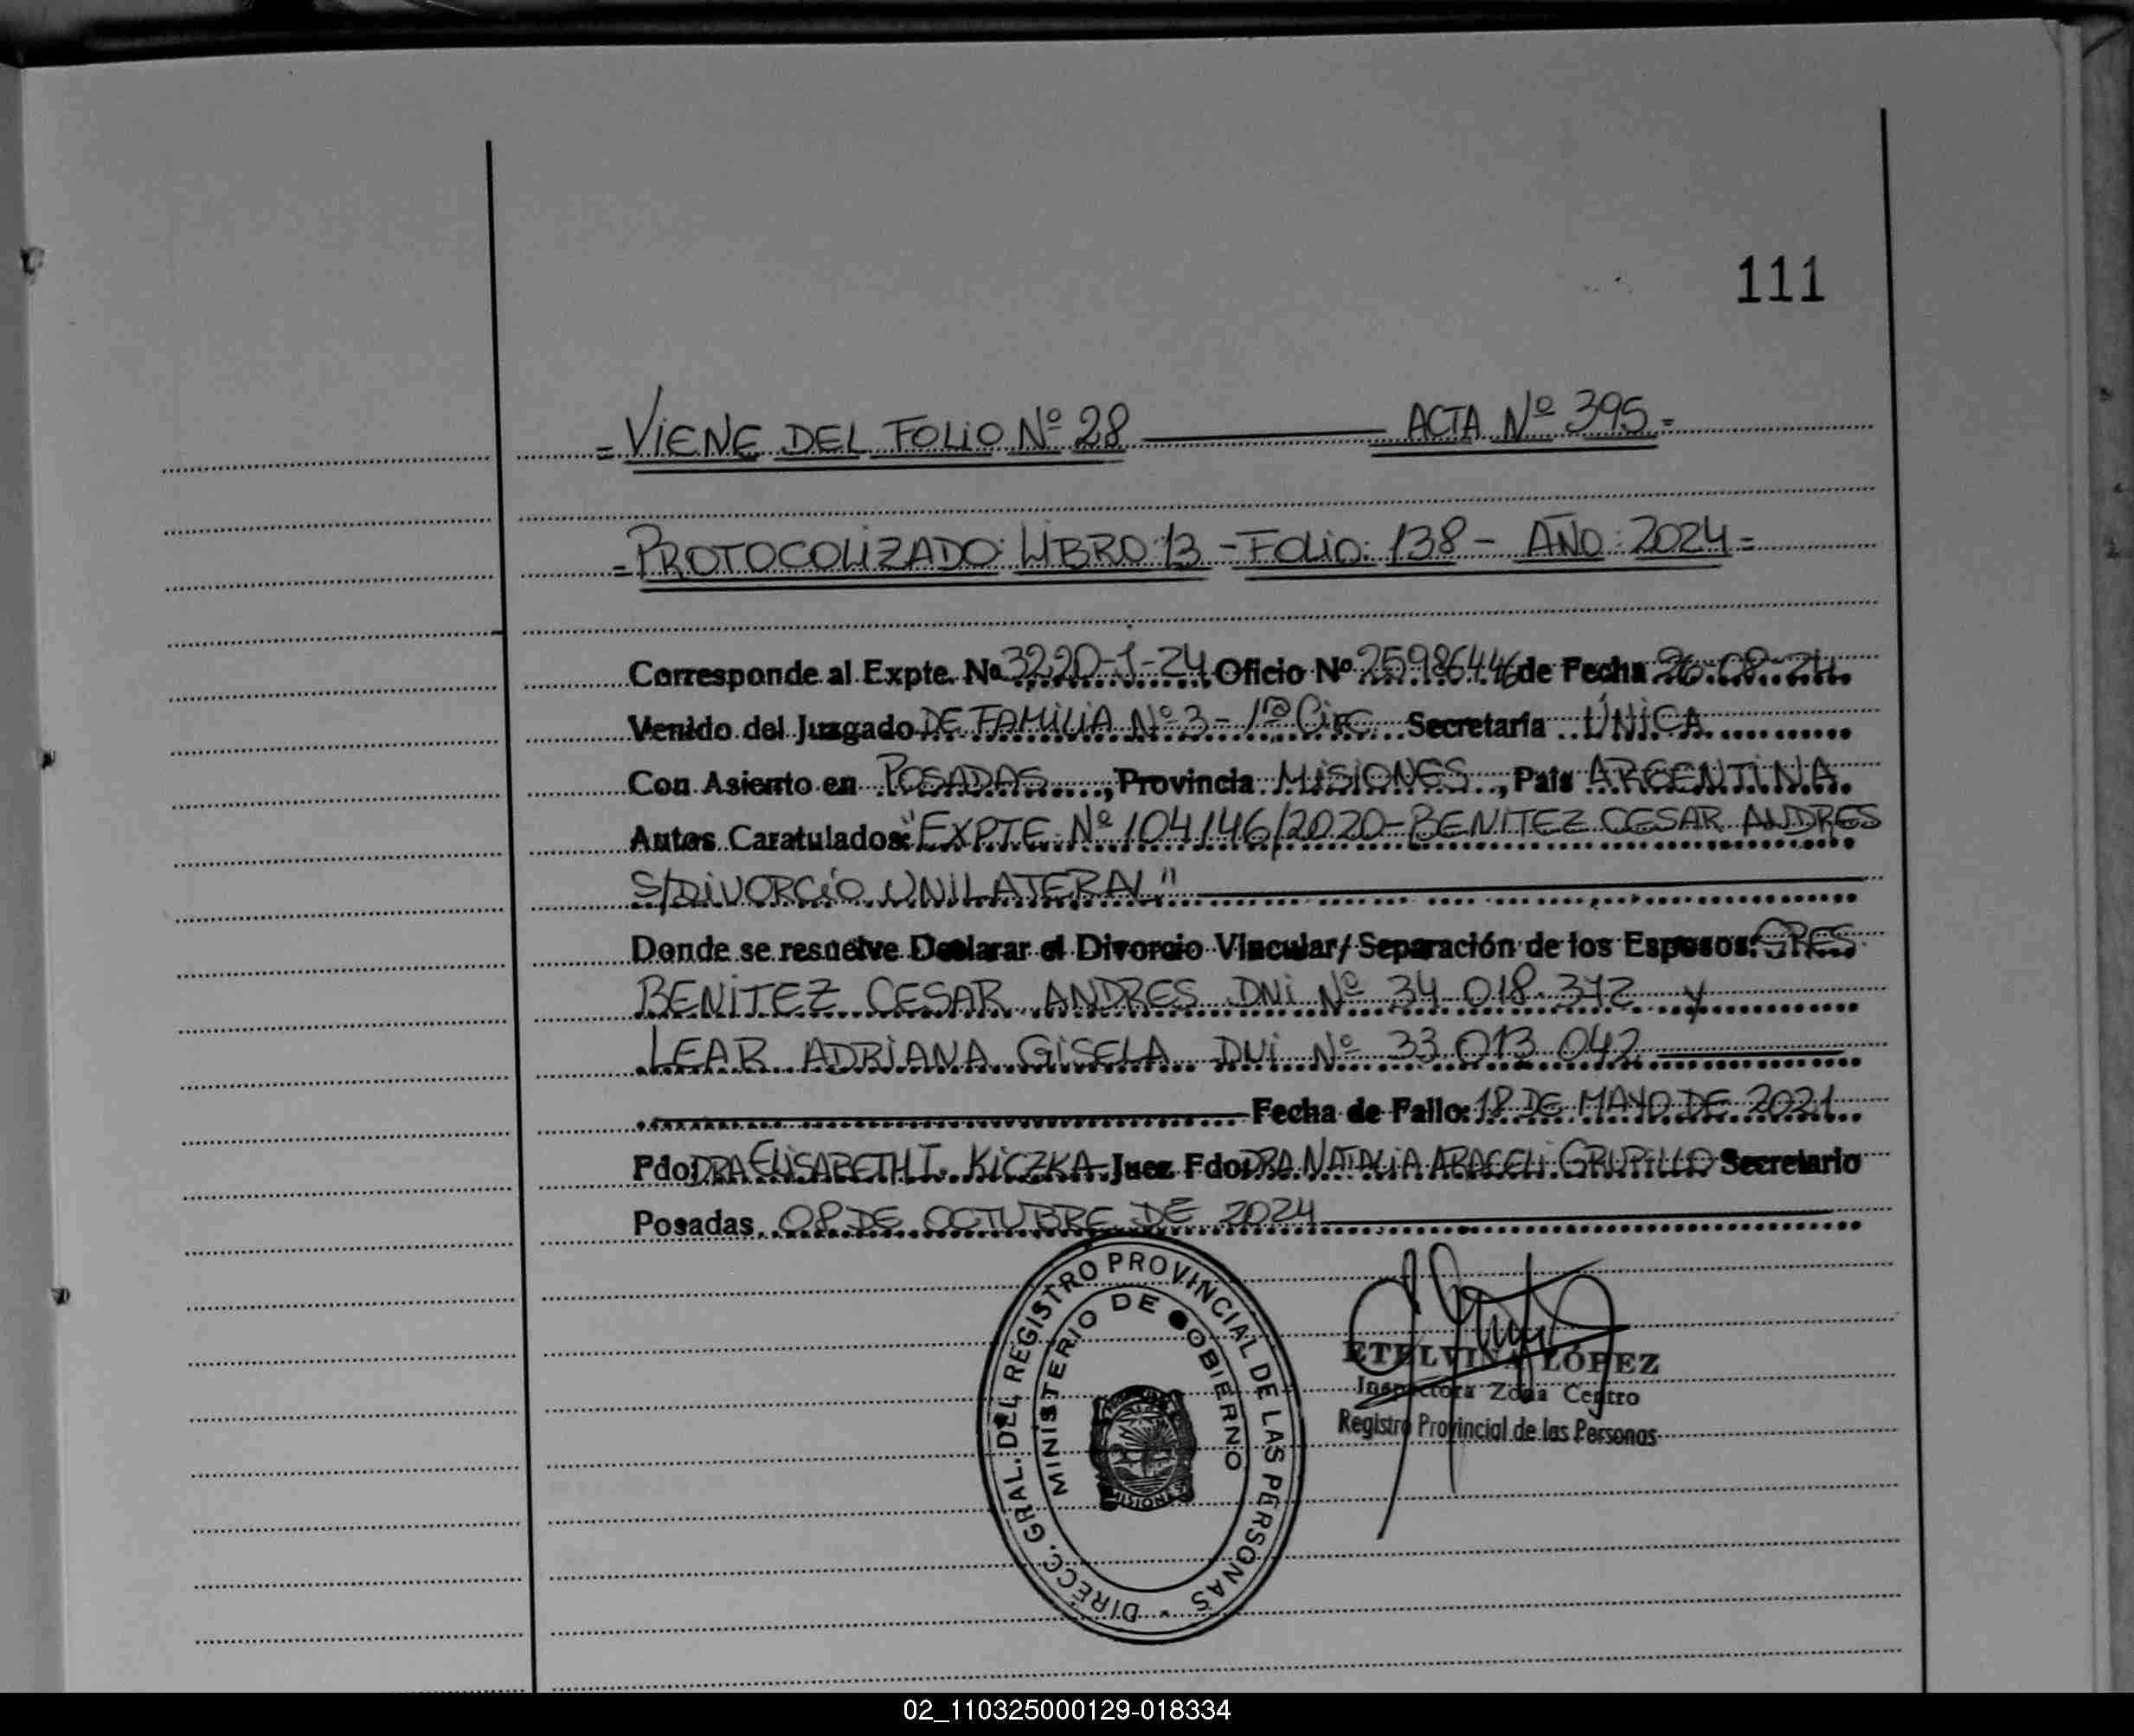 111
= VIENE DEL FOLIO Nº 28 ACTA Nº 395 =
= PROTOCOLIZADO: LIBRO: 13 - FOLIO: 138 - AÑO: 2024 =
Corresponde al Expte. Nº 3220-J-24 Oficio Nº 25986446 de Fecha 26-08-24
Venido del Juzgado DE FAMILIA Nº 3 - 1ª Circ Secretaría ÚNICA
Con Asiento en POSADAS, Provincia MISIONES, País ARGENTINA.
Autos Caratulados: "EXPTE Nº 104146/2020 - BENITEZ CESAR ANDRES
S/DIVORCIO UNILATERAL"
Donde se resuelve Declarar el Divorcio Vincular/ Separación de los Esposos: SRES
BENITEZ CESAR ANDRES DNI Nº 34.018.372 y
LEAR ADRIANA GISELA DNI Nº 33.013.042
Fecha de Fallo: 18 DE MAYO DE 2021
Fdo: DRA ELISABETH I. KICZKA Juez Fdo: DRA NATALIA ARACELI Secretario
Posadas, 08 DE OCTUBRE DE 2024
DIRECC. GRAL. DEL REGISTRO PROVINCIAL DE LAS PERSONAS
MINISTERIO DE GOBIERNO
MISIONES
ETELVINA LÓPEZ
Inspectora Zona Centro
Registro Provincial de las Personas
02_110325000129-018334